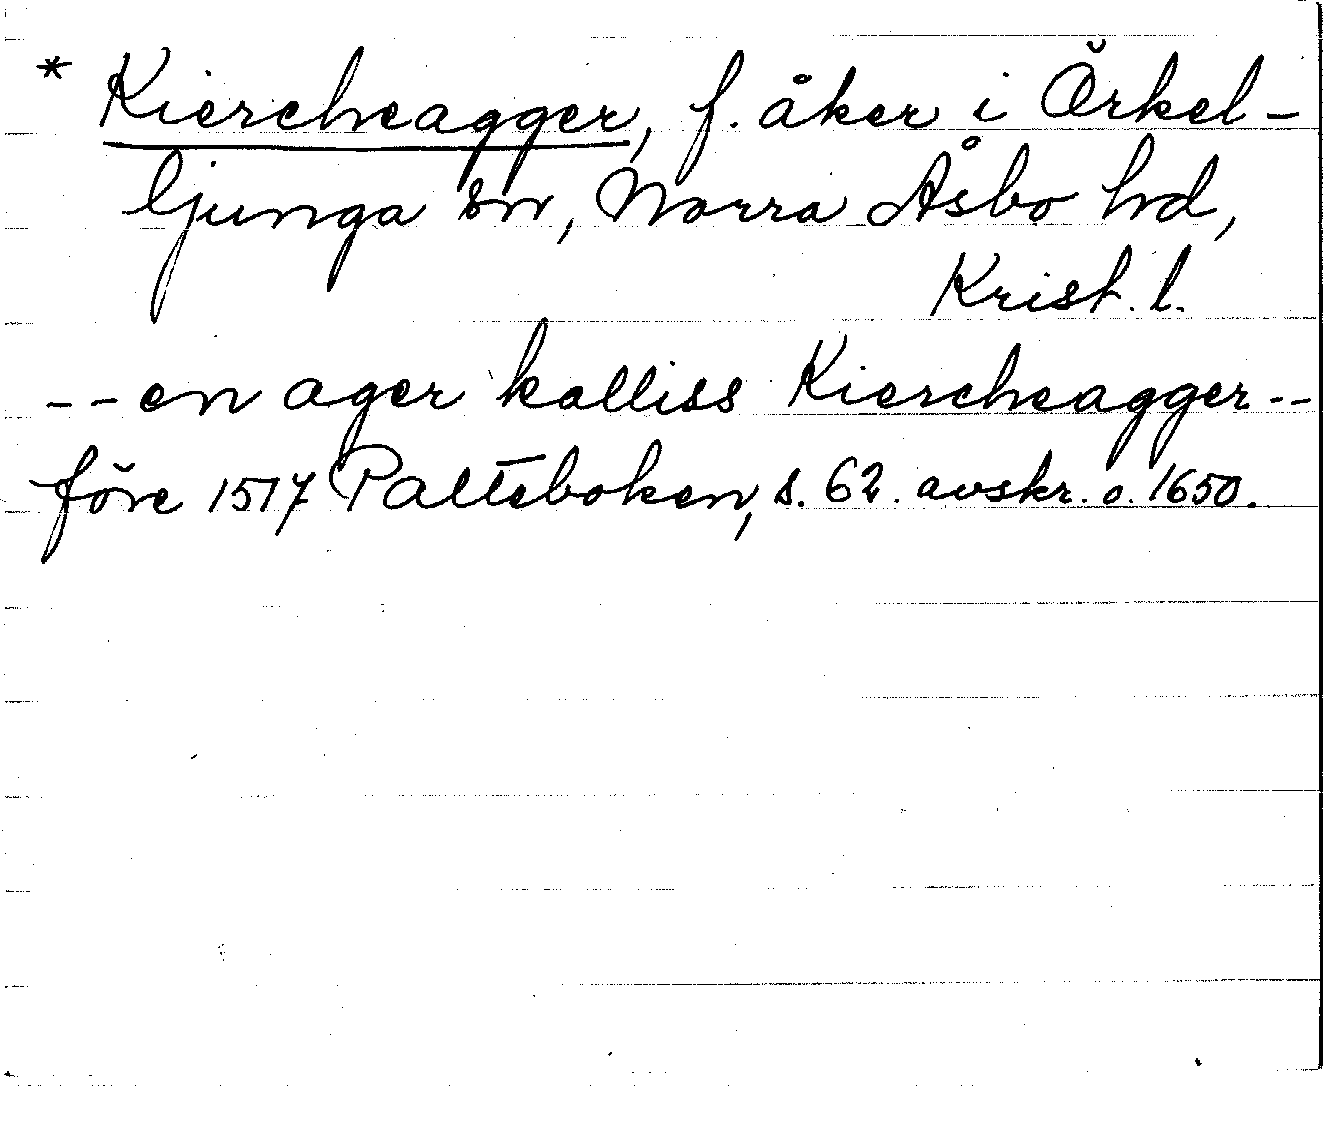 * Kiercheagger, f. åker i Örkel-
ljunga sn, Norra Åsbo hd,
Krist. l.
-- en ager kalliss Kiercheagger --
före 1517 Palteboken, s. 62. avskr. o. 1650.